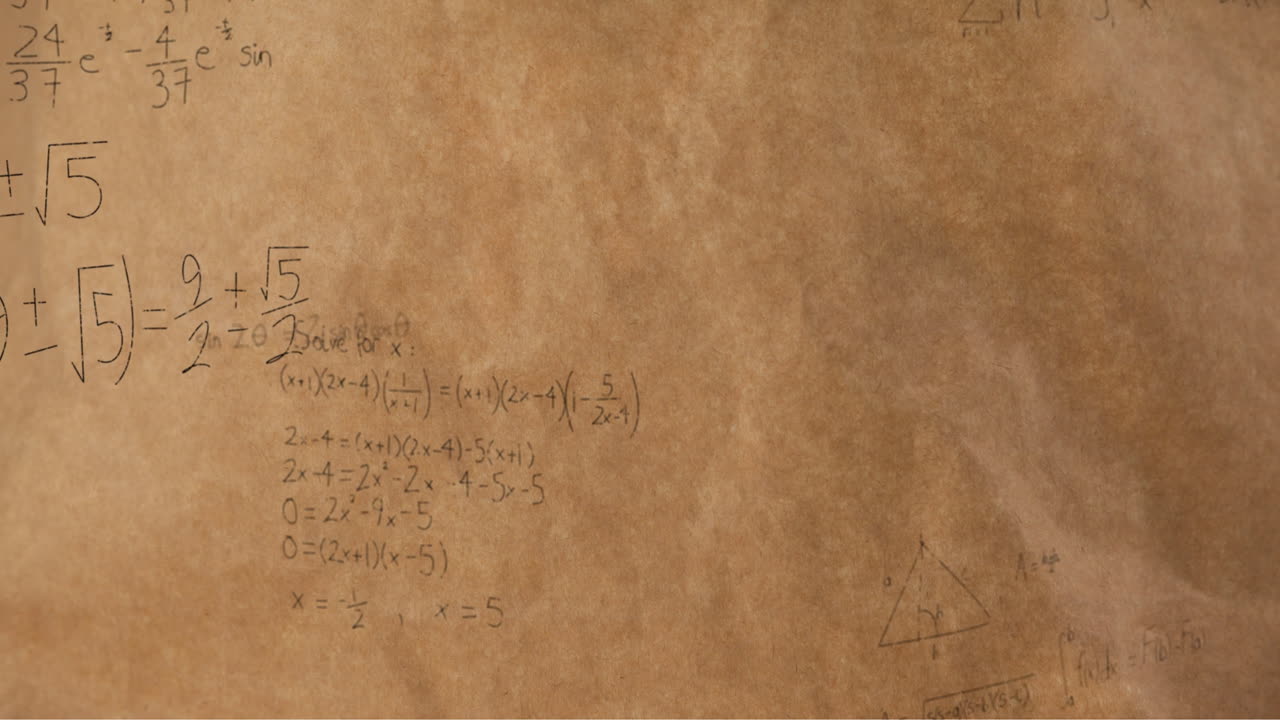 24/37 e^-t/2 - 4/37 e^-t/2 sin
± √5
± √5) = 9/2 ± √5/2
sin 2θ
Solve for x:
(x+1)(2x-4)(1/(x+1)) = (x+1)(2x-4)(1-5/(2x-4))
2x-4=(x+1)(2x-4)-5(x+1)
2x-4=2x²-2x -4-5x-5
0=2x²-9x-5
0=(2x+1)(x-5)
x = -1/2 , x = 5
a
h
b
∫_a^b f(x)dx = F(b)-F(a)
√s(s-a)(s-b)(s-c)